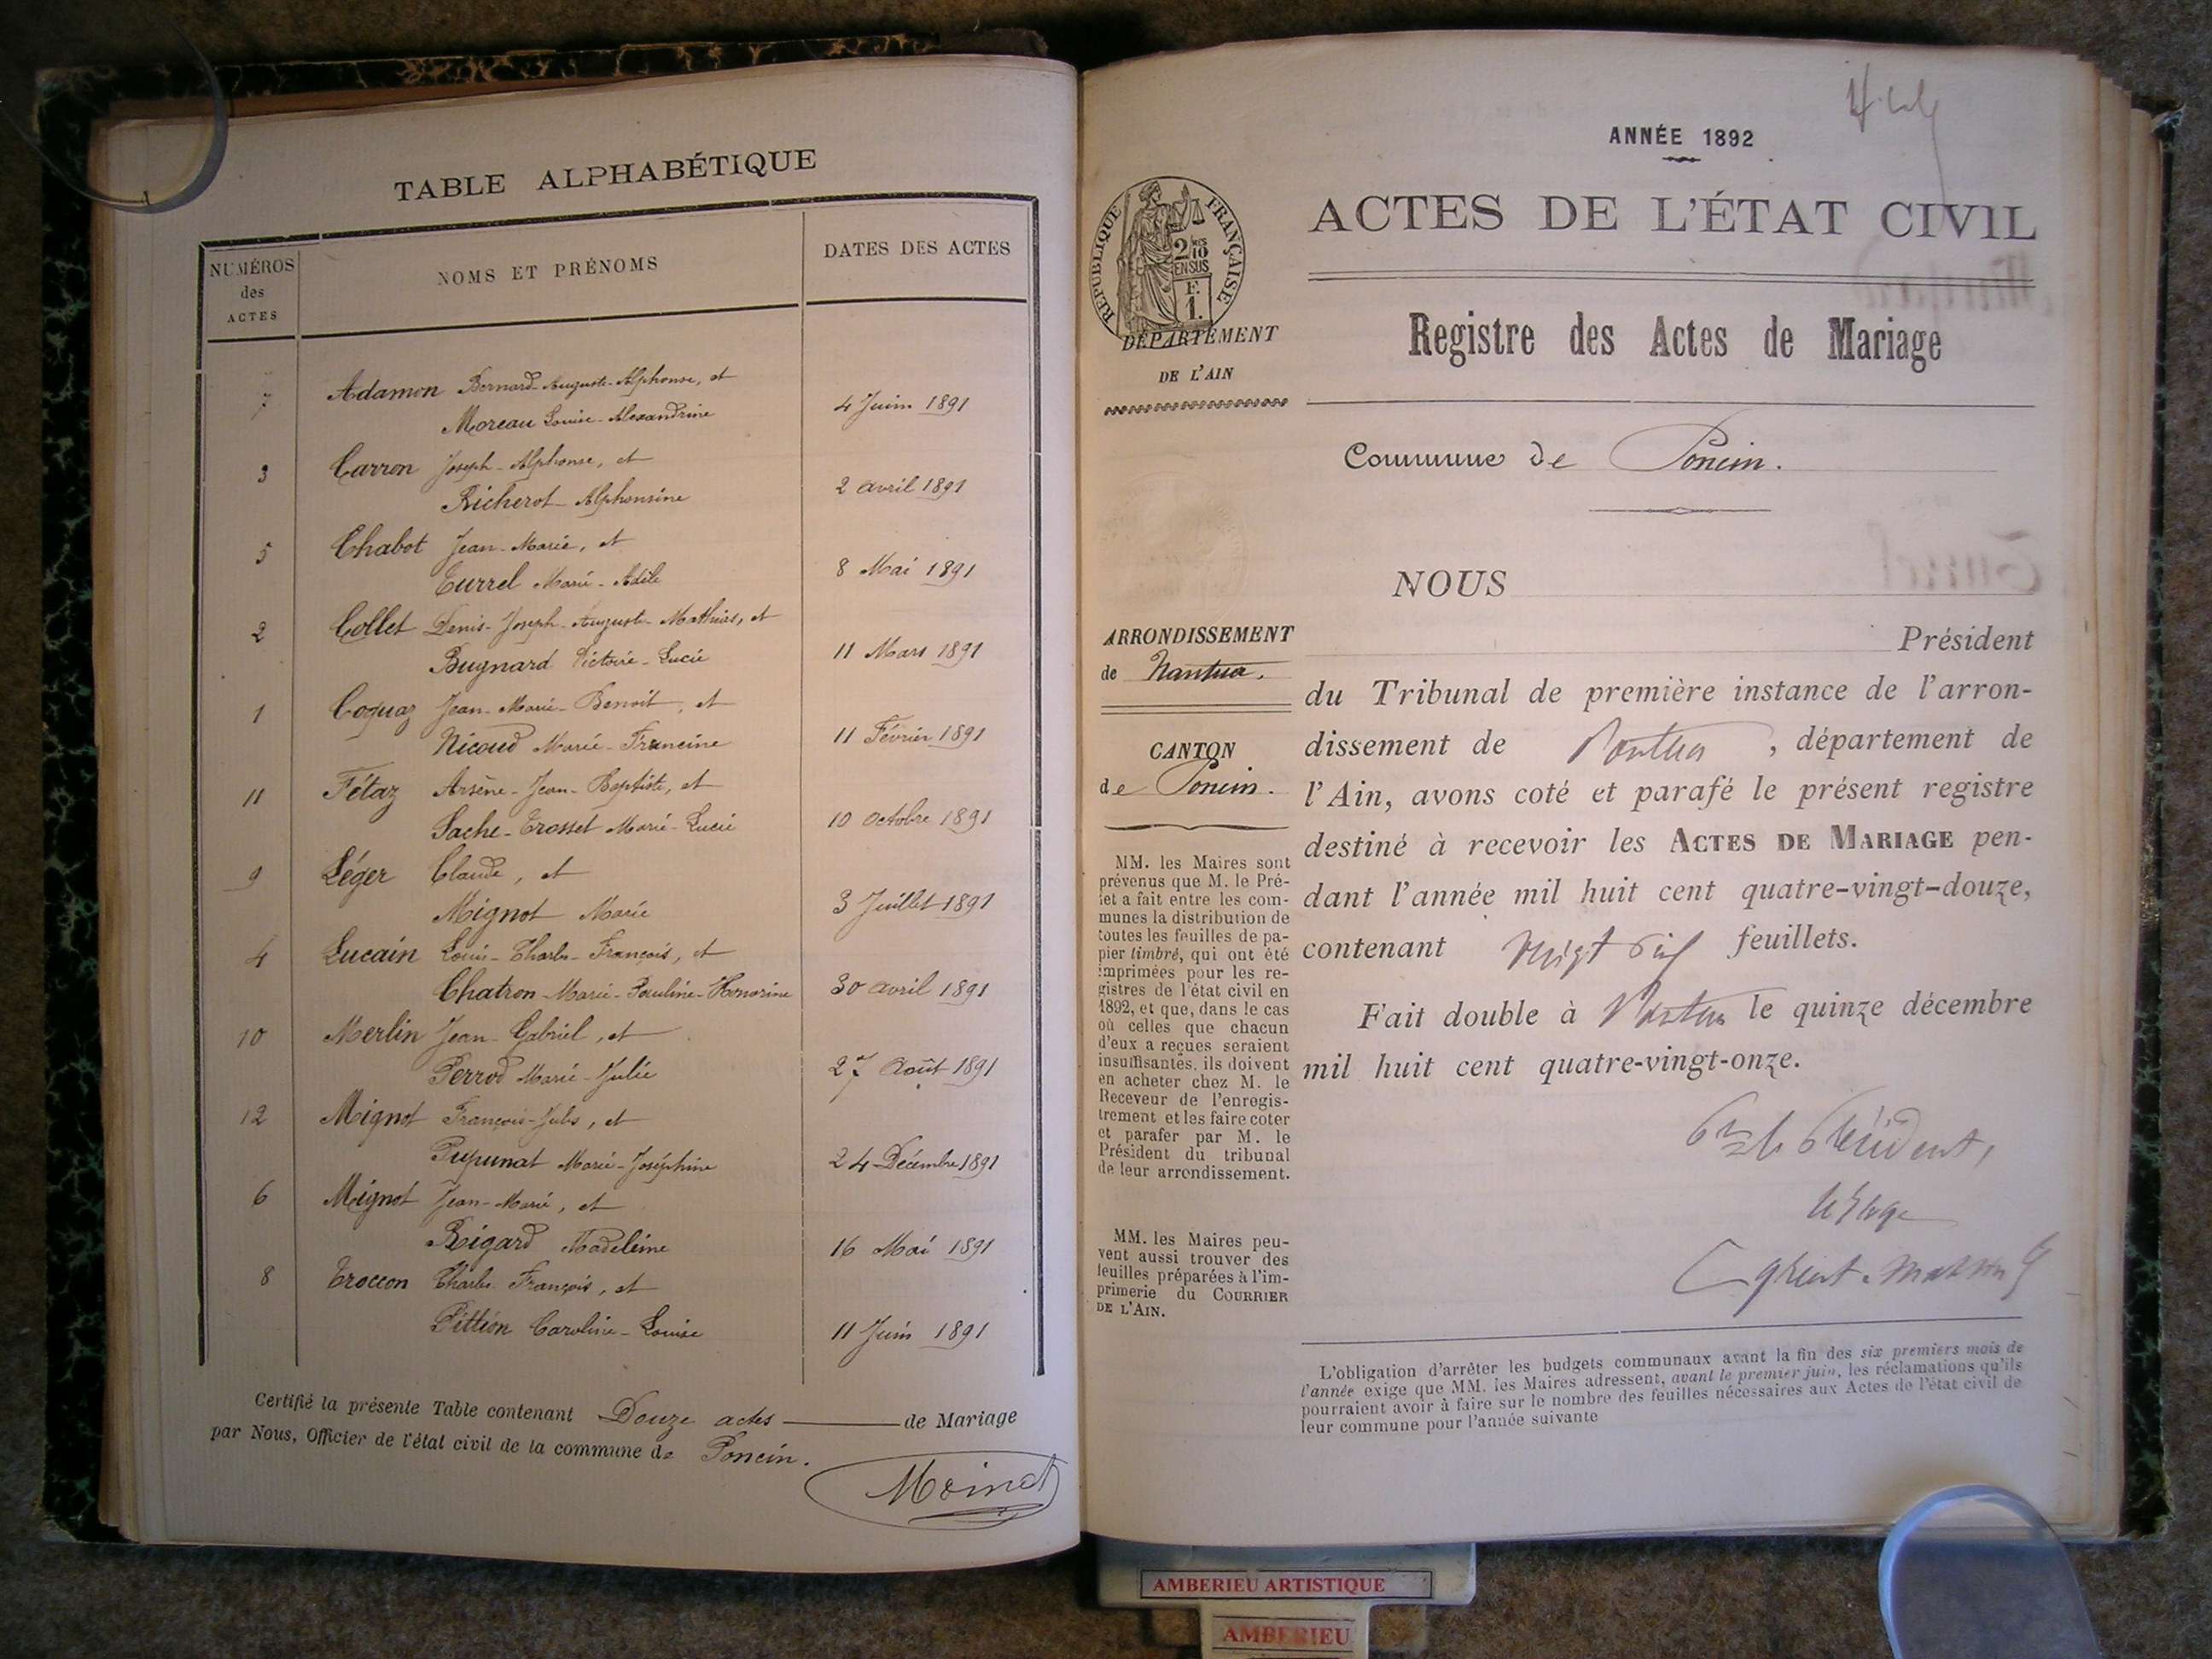 TABLE ALPHABÉTIQUE
NUMÉROS des ACTES
NOMS ET PRÉNOMS
DATES DES ACTES
7 Adamon Bernard-Auguste-Alphonse, et
Moreau Louise-Alexandrine 4 Juin 1891
3 Carron Joseph-Alphonse, et
Richerot Alphonsine 2 avril 1891
5 Chabot Jean-Marie, et
Currel Marie-Adèle 8 Mai 1891
2 Collet Denis-Joseph-Auguste-Mathias, et
Bugnard Victoire-Lucie 11 Mars 1891
1 Coquaz Jean-Marie-Benoit, et
Nicoud Marie-Francine 11 Février 1891
11 Fétaz Arsène-Jean-Baptiste, et
Sache-Trosset Marie-Lucie 10 octobre 1891
9 Léger Claude, et
Mignot Marie 3 Juillet 1891
4 Lucain Louis-Charles-François, et
Chatron-Marie-Pauline-Honorine 30 avril 1891
10 Merlin Jean-Gabriel, et
Perrod Marie-Julie 27 Août 1891
12 Mignot François-Jules, et
Pupunat Marie-Joséphine 24 Décembre 1891
6 Mignot Jean-Marie, et
Rigard Madeleine 16 Mai 1891
8 Troccon Charles François, et
Pittion Caroline-Louise 11 Juin 1891
Certifié la présente Table contenant Douze actes de Mariage
par Nous, Officier de l'état civil de la commune de Poncin.
Moinet
ANNÉE 1892
RÉPUBLIQUE FRANÇAISE
2/10 EN SUS
F. 1.
DÉPARTEMENT
DE L'AIN
ACTES DE L'ÉTAT CIVIL
Registre des Actes de Mariage
Commune de Poncin.
ARRONDISSEMENT
de Nantua.
CANTON
de Poncin.
MM. les Maires sont
prévenus que M. le Pré-
fet a fait entre les com-
munes la distribution de
toutes les feuilles de pa-
pier timbré, qui ont été
imprimées pour les re-
gistres de l'état civil en
1892, et que, dans le cas
où celles que chacun
d'eux a reçues seraient
insuffisantes, ils doivent
en acheter chez M. le
Receveur de l'enregis-
trement et les faire coter
et parafer par M. le
Président du tribunal
de leur arrondissement.
MM. les Maires peu-
vent aussi trouver des
feuilles préparées à l'im-
primerie du COURRIER
DE L'AIN.
NOUS
Président
du Tribunal de première instance de l'arron-
dissement de Nantua, département de
l'Ain, avons coté et parafé le présent registre
destiné à recevoir les ACTES DE MARIAGE pen-
dant l'année mil huit cent quatre-vingt-douze,
contenant vingt six feuillets.
Fait double à Nantua le quinze décembre
mil huit cent quatre-vingt-onze.
Pr le Président,
le Juge
L'obligation d'arrêter les budgets communaux avant la fin des six premiers mois de
l'année exige que MM. les Maires adressent, avant le premier juin, les réclamations qu'ils
pourraient avoir à faire sur le nombre des feuilles nécessaires aux Actes de l'état civil de
leur commune pour l'année suivante
AMBERIEU ARTISTIQUE
AMBERIEU